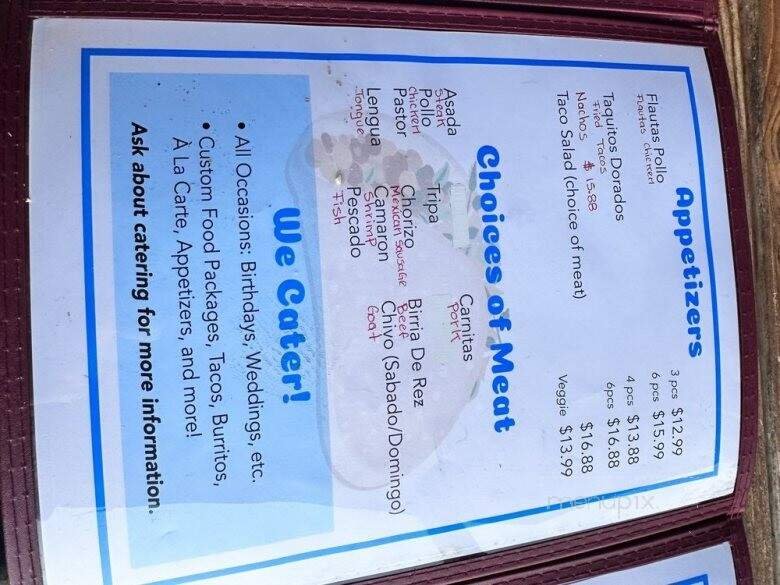 Appetizers
Flautas Pollo 3 pcs $12.99
Flautas chicken 6 pcs $15.99
Taquitos Dorados 4 pcs $13.88
Fried Tacos 6pcs $16.88
Nachos $15.88
Taco Salad (choice of meat) $16.88
Veggie $13.99
Choices of Meat
Asada Carnitas
Steak Pork
Pollo Tripa
Chicken
Pastor Chorizo Birria De Rez
Mexican sausage Beef
Lengua Camaron Chivo (Sabado/Domingo)
Tongue Shrimp Goat
Pescado
Fish
We Cater!
• All Occasions: Birthdays, Weddings, etc.
• Custom Food Packages, Tacos, Burritos,
À La Carte, Appetizers, and more!
Ask about catering for more information.
menupix